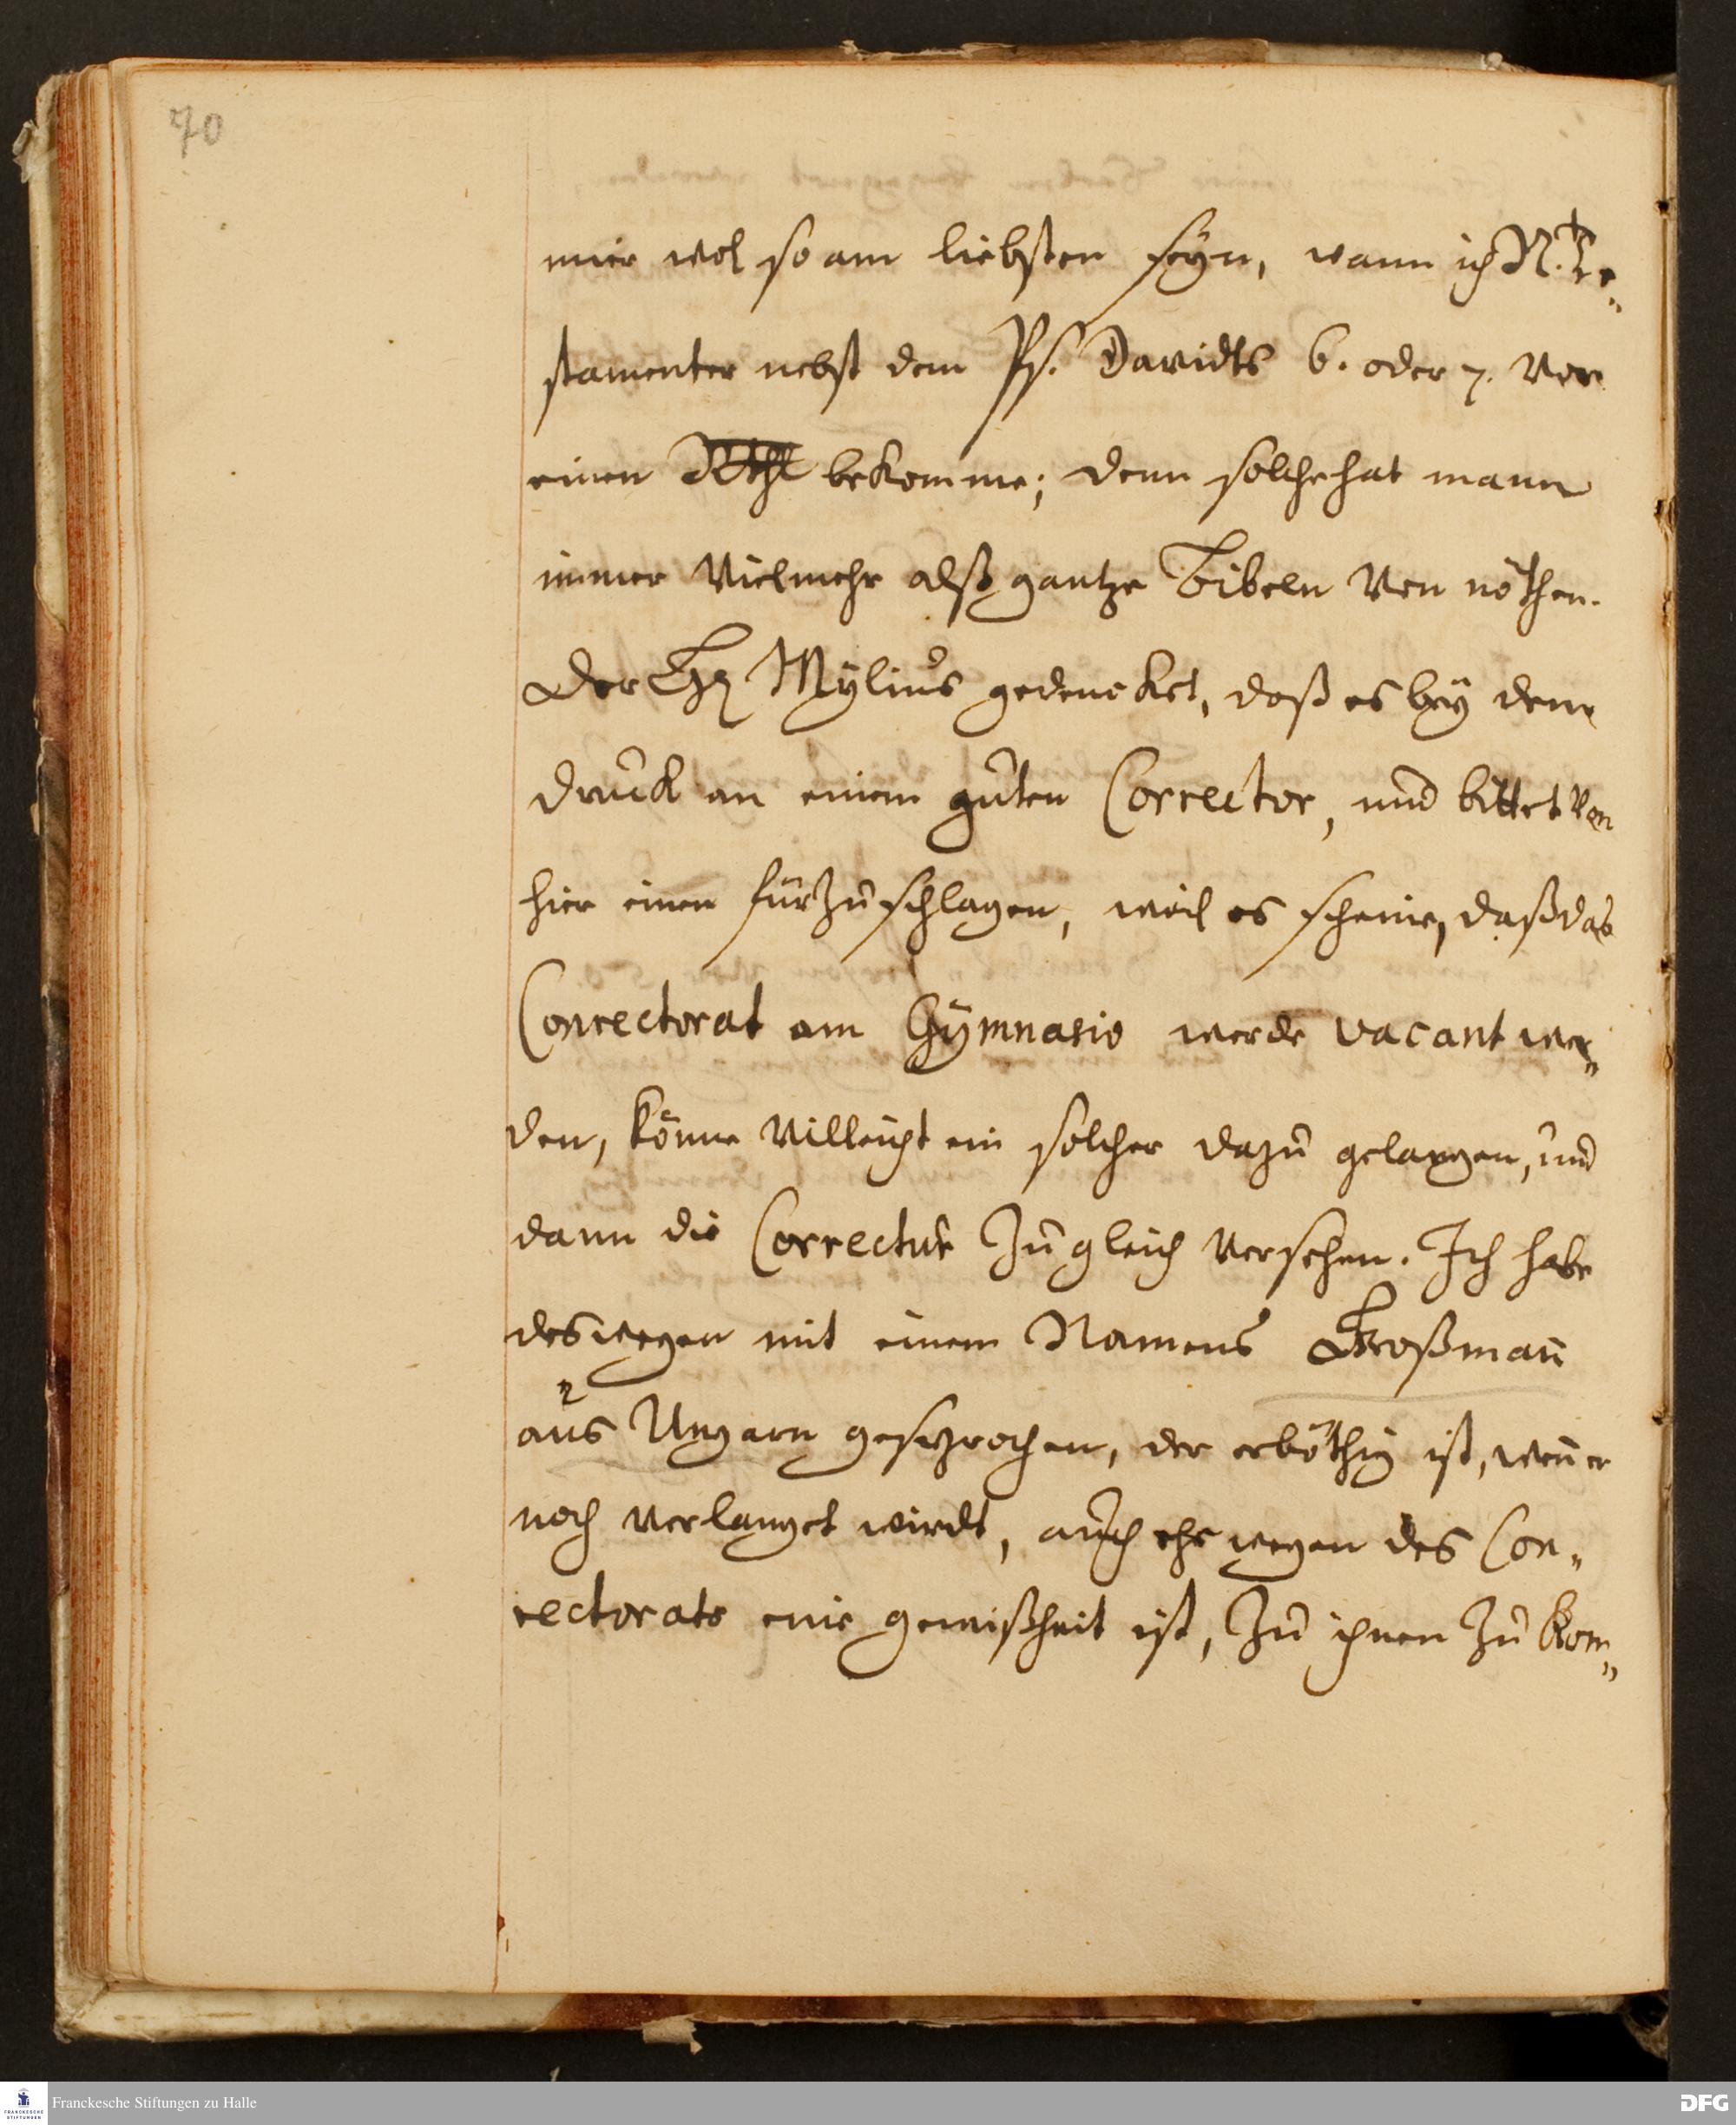 70
mir wol so am liebsten seÿn, wann ich N. Te„
stamenter nebst dem Ps. Davidts 6. oder 7. vor
einen Rthl bekomme; denn solche hat mann
immer vielmehr alß gantze Bibeln von nöthen.
der H. Mÿlius gedencket, daß es beÿ dem
druck an einem guten Corrector, und bittet von
hier einen fürzuschlagen, weil es scheine, daß das
Conrectorat am Gÿmnasio werde vacant wer„
den, könne villeicht ein solcher dazu gelangen, und
dann die Correctur zugleich versehen. Ich habe
deswegen mit einem Namens Großmañ
aus Ungarn gesprochen, der erböthig ist, weñ er
noch verlanget wirdt, auch ehe wegen des Con„
rectorats eine gewißheit ist, zu ihnen zu kom„
Franckesche Stiftungen zu Halle
DFG
FRANCKESCHE
STIFTUNGEN